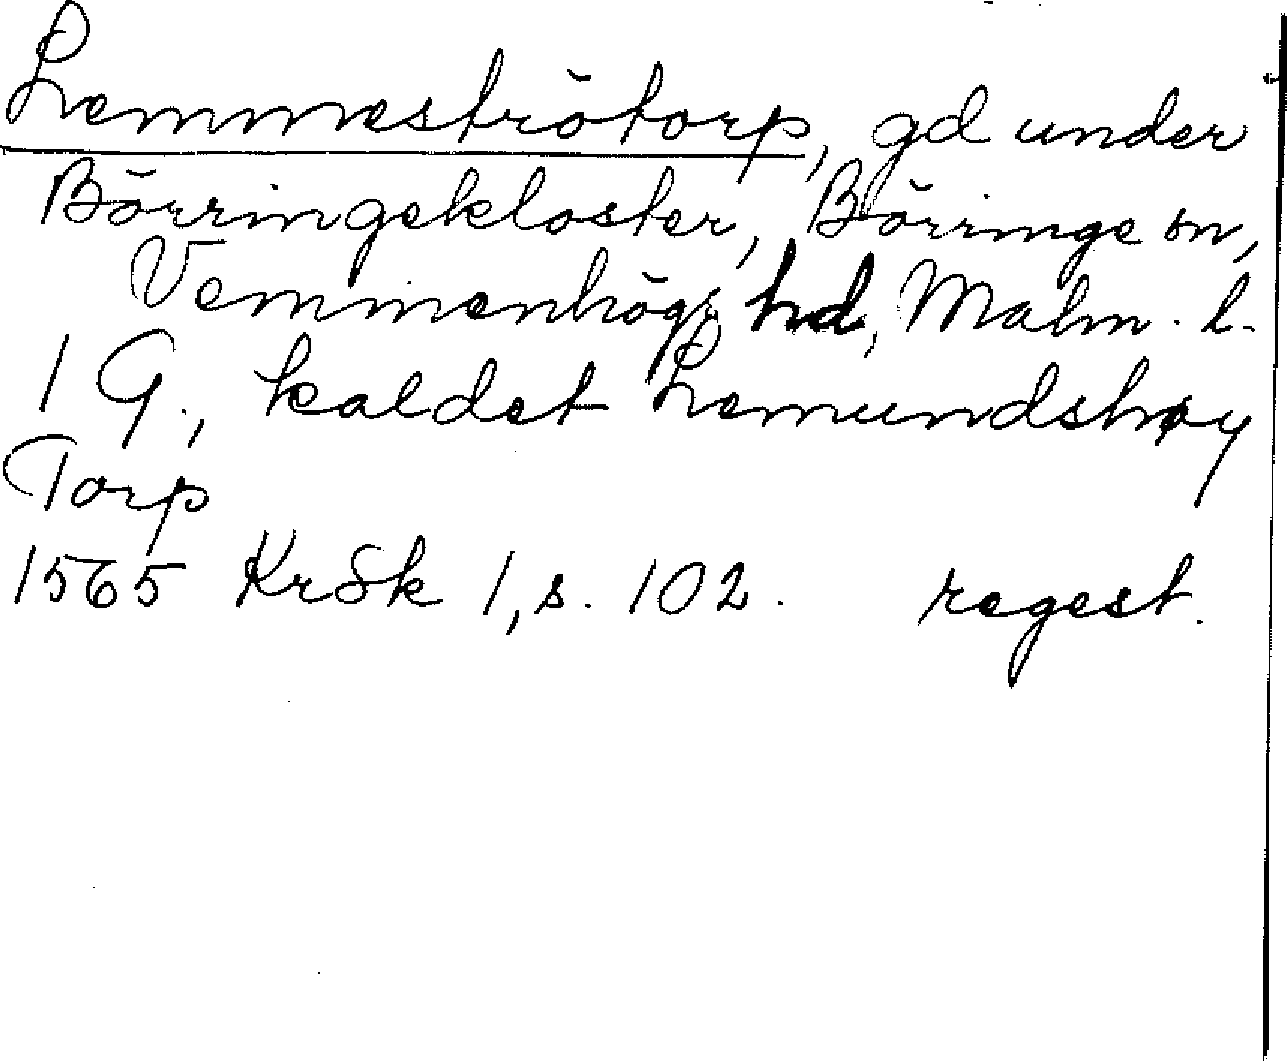 Lemmeströtorp, gd under
Börringekloster, Börringe sn,
Vemmenhögs hd, Malm. l.
1 G., kaldet Lemundshøy
Torp
1565 KrSk 1, s. 102. regest.